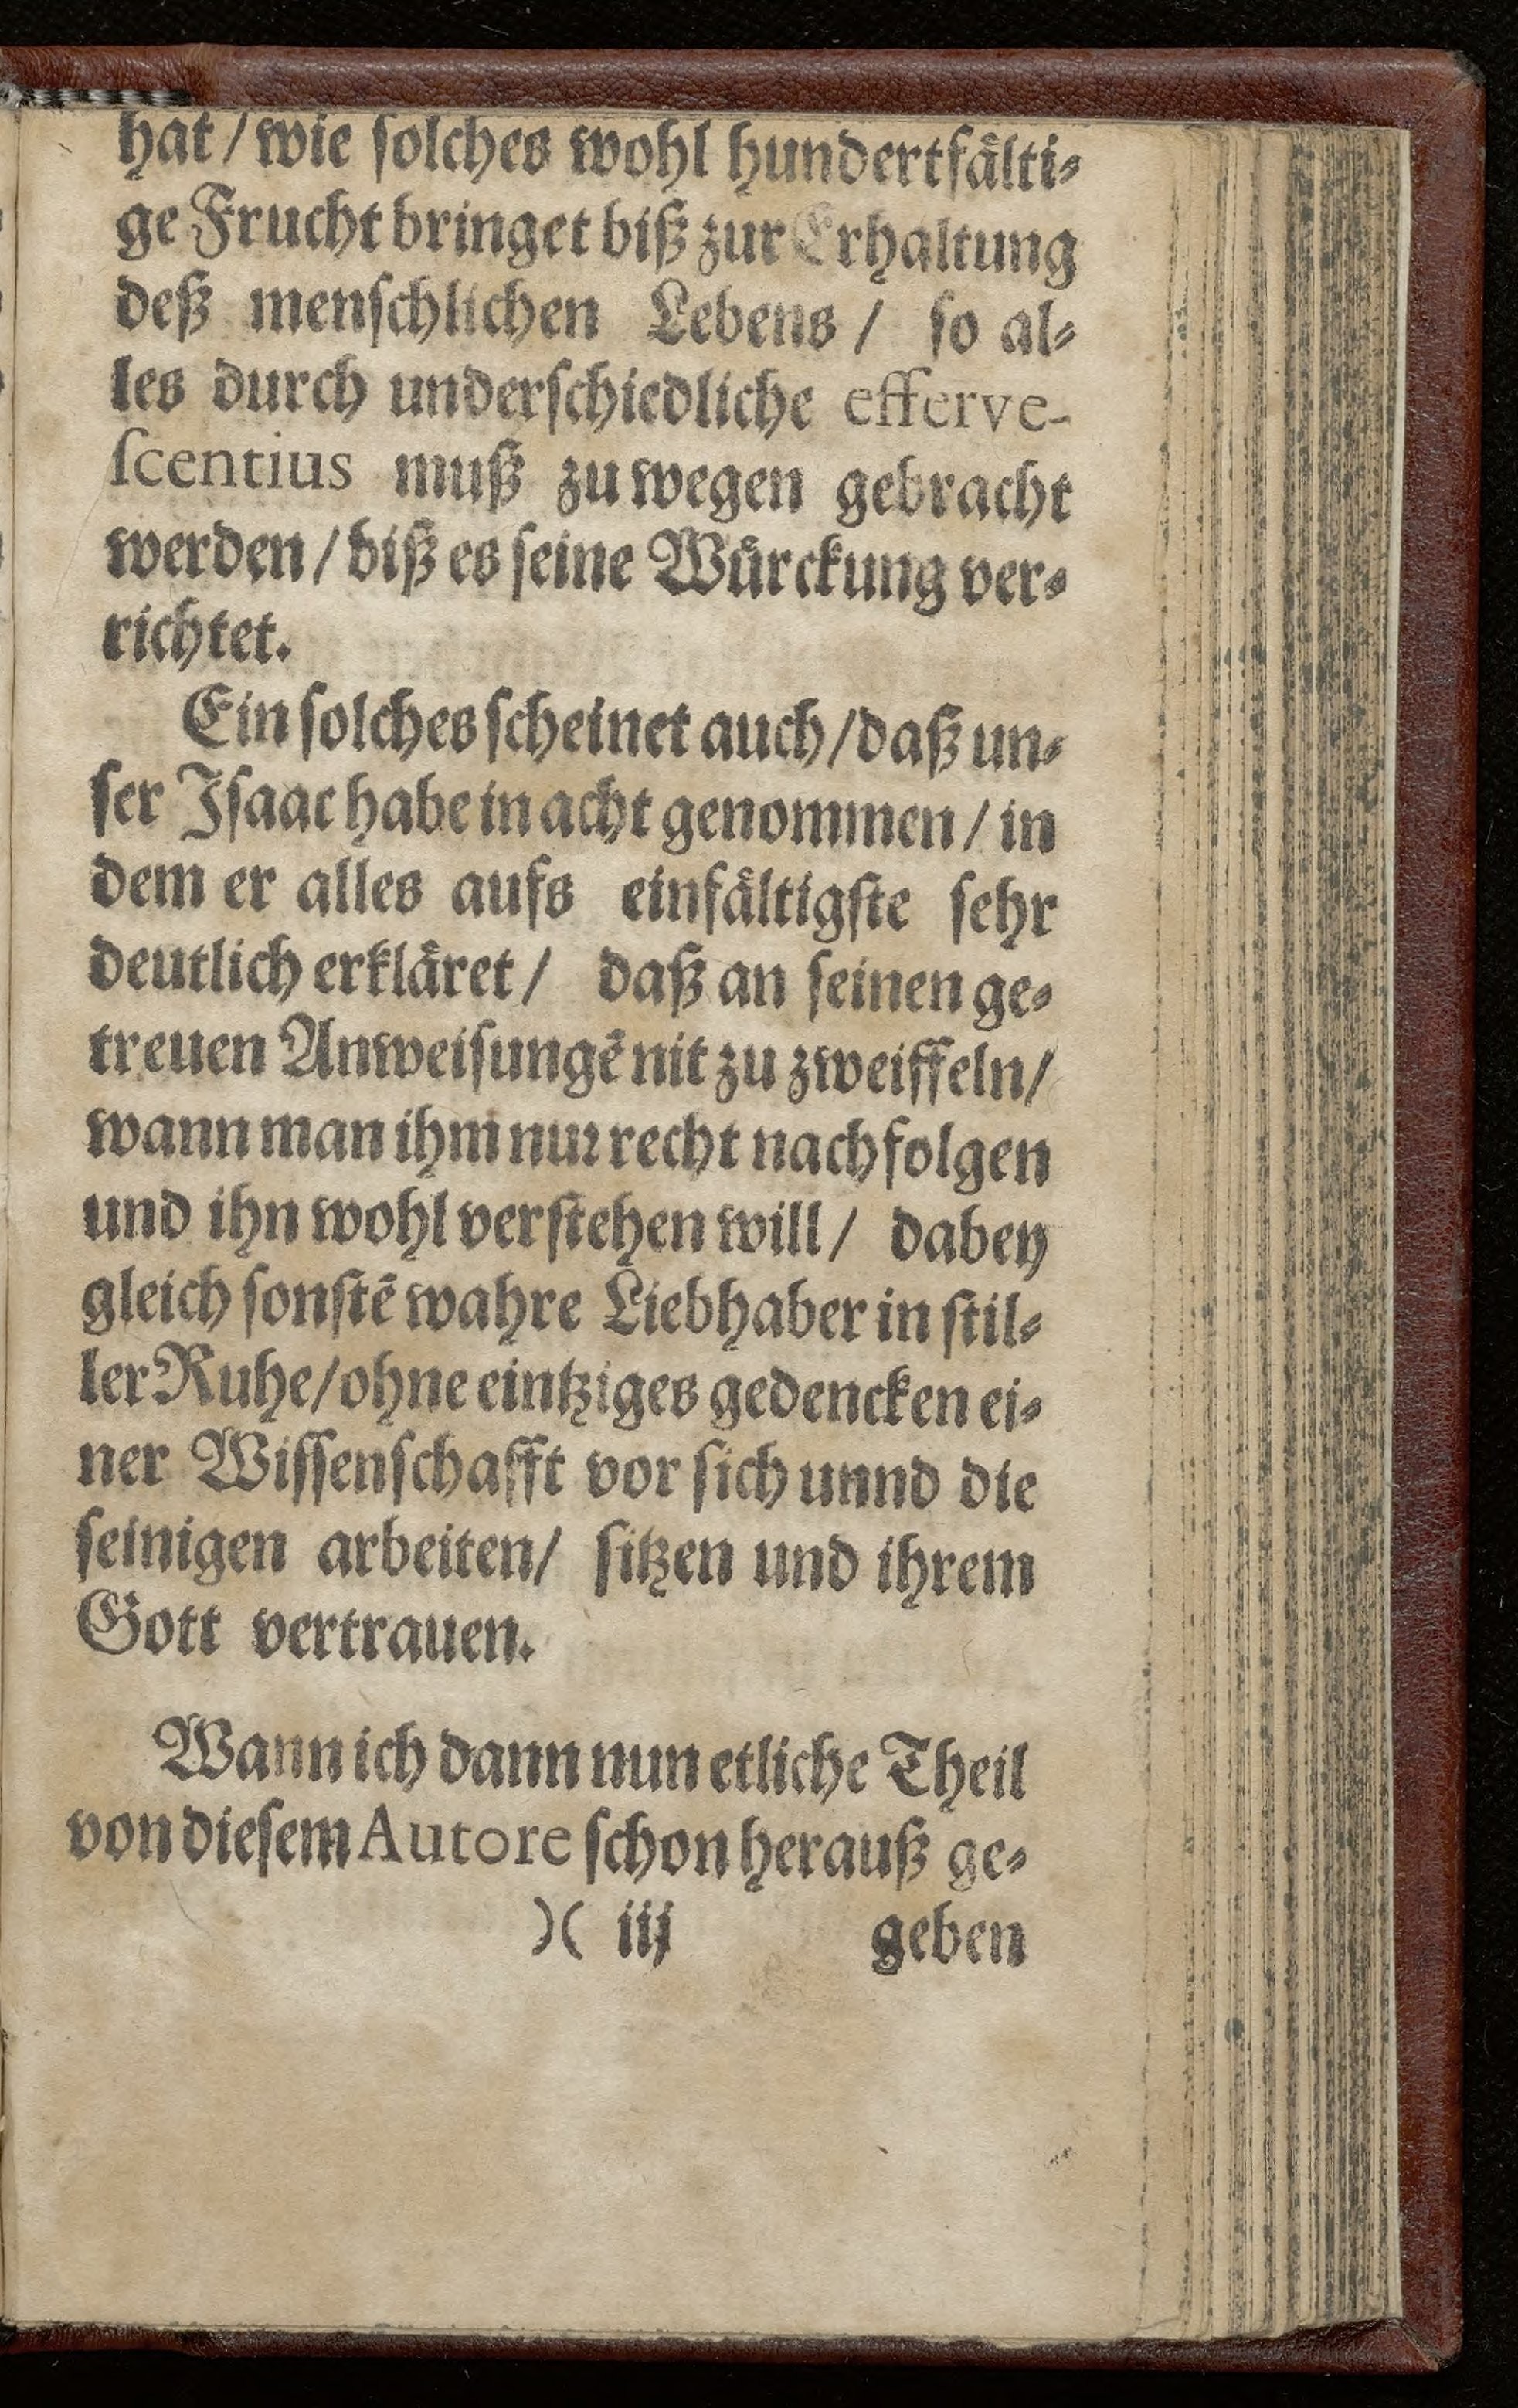 hat / wie ſolches wohl hundertfaͤlti⸗
ge Frucht bringet biß zur Erhaltung
deß menſchlichen Lebens / ſo al⸗
les durch underſchiedliche efferve-
ſcentius muß zu wegen gebracht
werden / biß es ſeine Wuͤrckung ver⸗
richtet.
Ein ſolches ſcheinet auch / daß un⸗
ſer Iſaac habe in acht genommen / in
dem er alles aufs einfaͤltigſte ſehr
deutlich erklaͤret / daß an ſeinen ge⸗
treuen Anweiſungē nit zu zweiffeln /
wann man ihm nuꝛ recht nachfolgen
und ihn wohl verſtehen will / dabey
gleich ſonſtē wahre Liebhaber in ſtil⸗
ler Ruhe / ohne eintziges gedencken ei⸗
ner Wiſſenſchafft vor ſich unnd die
ſeinigen arbeiten / ſitzen und ihrem
Gott vertrauen.
Wann ich dann nun etliche Theil
von dieſem Autore ſchon herauß ge⸗
)( iij geben